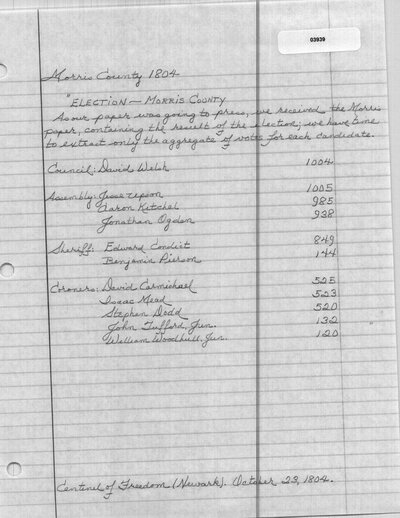 03939
Morris County 1804
"ELECTION — MORRIS COUNTY
As our paper was going to press, we received the Morris
paper, containing the result of the election; we have time
to extract only the aggregate of votes for each candidate.
Council: David Welsh 1004
Assembly: Jesse Upson 1005
Aaron Kitchel 985
Jonathan Ogden 938
Sheriff: Edward Condict 849
Benjamin Pierson 144
Coroners: David Carmichael 525
Isaac Mead 523
Stephen Dodd 520
John Tufford, Jun. 132
William Woodhull, Jun. 120
Centinel of Freedom (Newark). October 23, 1804.